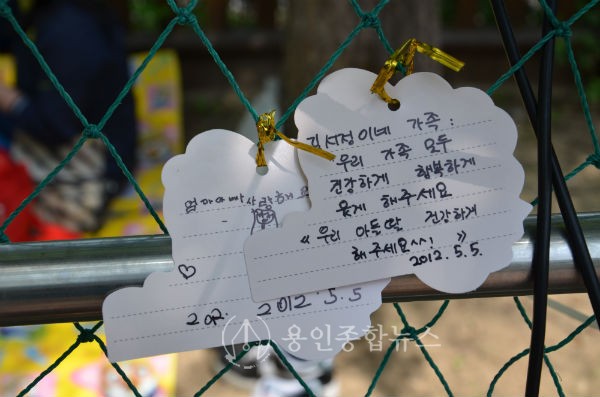 엄마아빠사랑해요
♡
202 2012.5.5
김서정이네 가족:
우리 가족 모두
건강하게 행복하게
웃게 해주세요
《우리 아들딸 건강하게
해주세요~! 》
2012.5.5.
용인종합뉴스